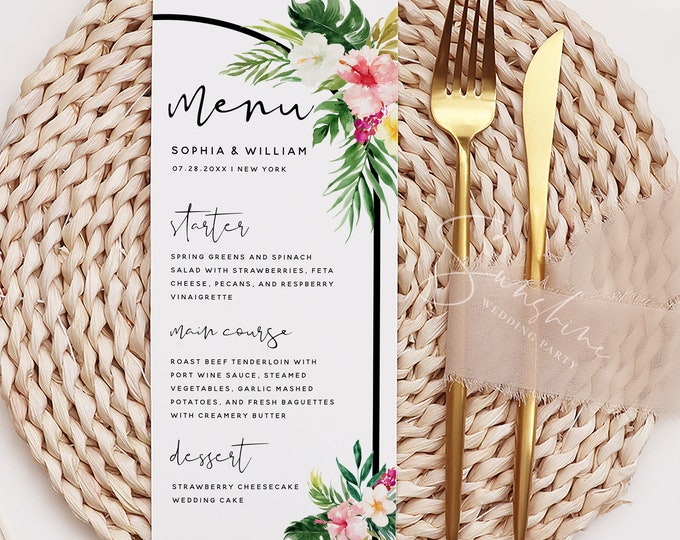 menu
SOPHIA & WILLIAM
07.28.20XX | NEW YORK
starter
SPRING GREENS AND SPINACH
SALAD WITH STRAWBERRIES, FETA
CHEESE, PECANS, AND RESPBERRY
VINAIGRETTE
main course
ROAST BEEF TENDERLOIN WITH
PORT WINE SAUCE, STEAMED
VEGETABLES, GARLIC MASHED
POTATOES, AND FRESH BAGUETTES
WITH CREAMERY BUTTER
dessert
STRAWBERRY CHEESECAKE
WEDDING CAKE
Sunshine
WEDDING PARTY